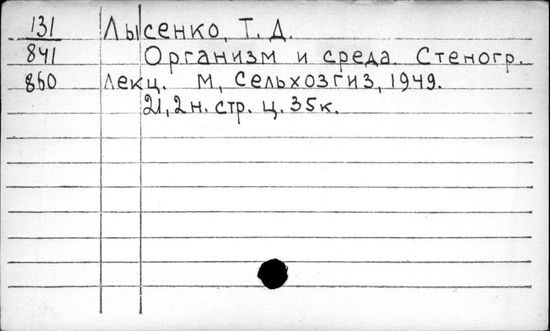 131 Лысенко, Т. Д.
841 Организм и среда. Стеногр.
860 лекц. М, Сельхозгиз, 1949.
21, 2 н. стр. ц. 35 к.